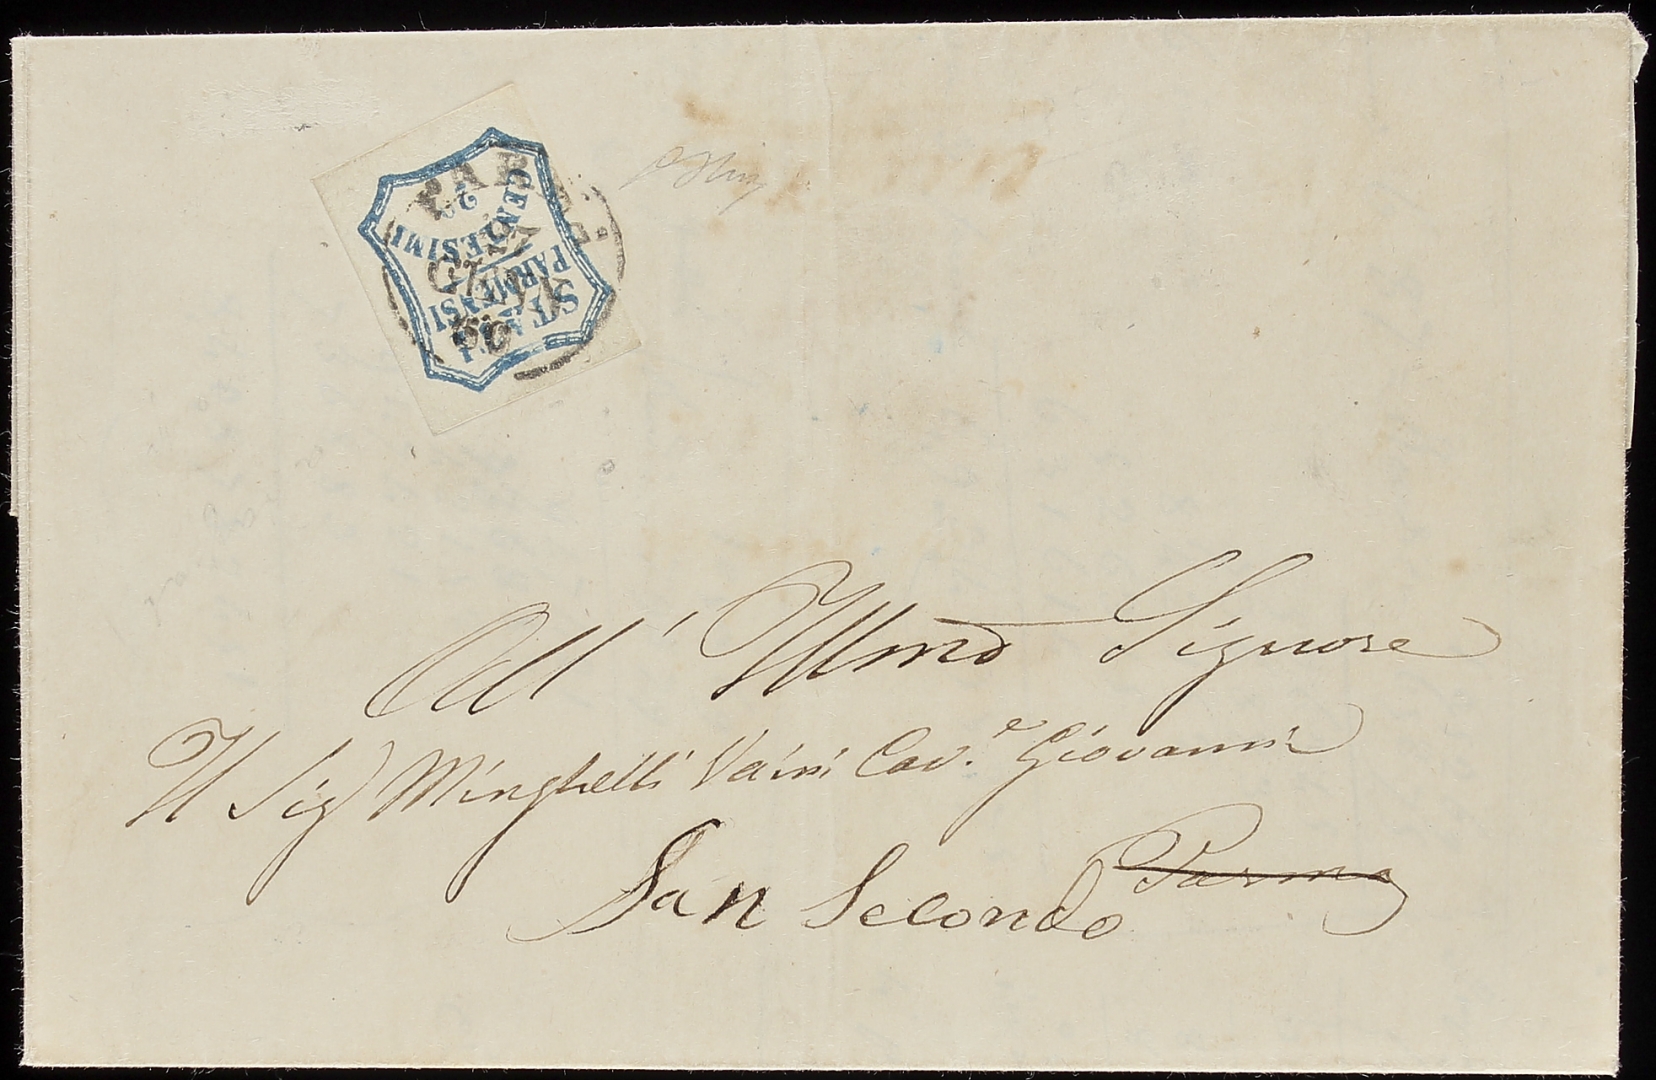 STATI
PARMENSI
CENTESIMI
20
PARMA
GIU
60
All' Illmo Signore
Il Sig Minghelli Vaini Cav.e Giovanni
San Secondo Parma